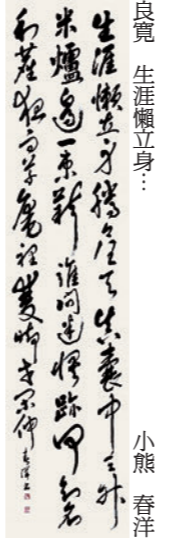 良寛 生涯懶立身… 小熊 春洋
生涯懶立身騰々任天真囊中三升
米爐邊一束薪誰問迷悟跡何知名
利塵夜雨草庵裡雙脚等閑伸 春洋書